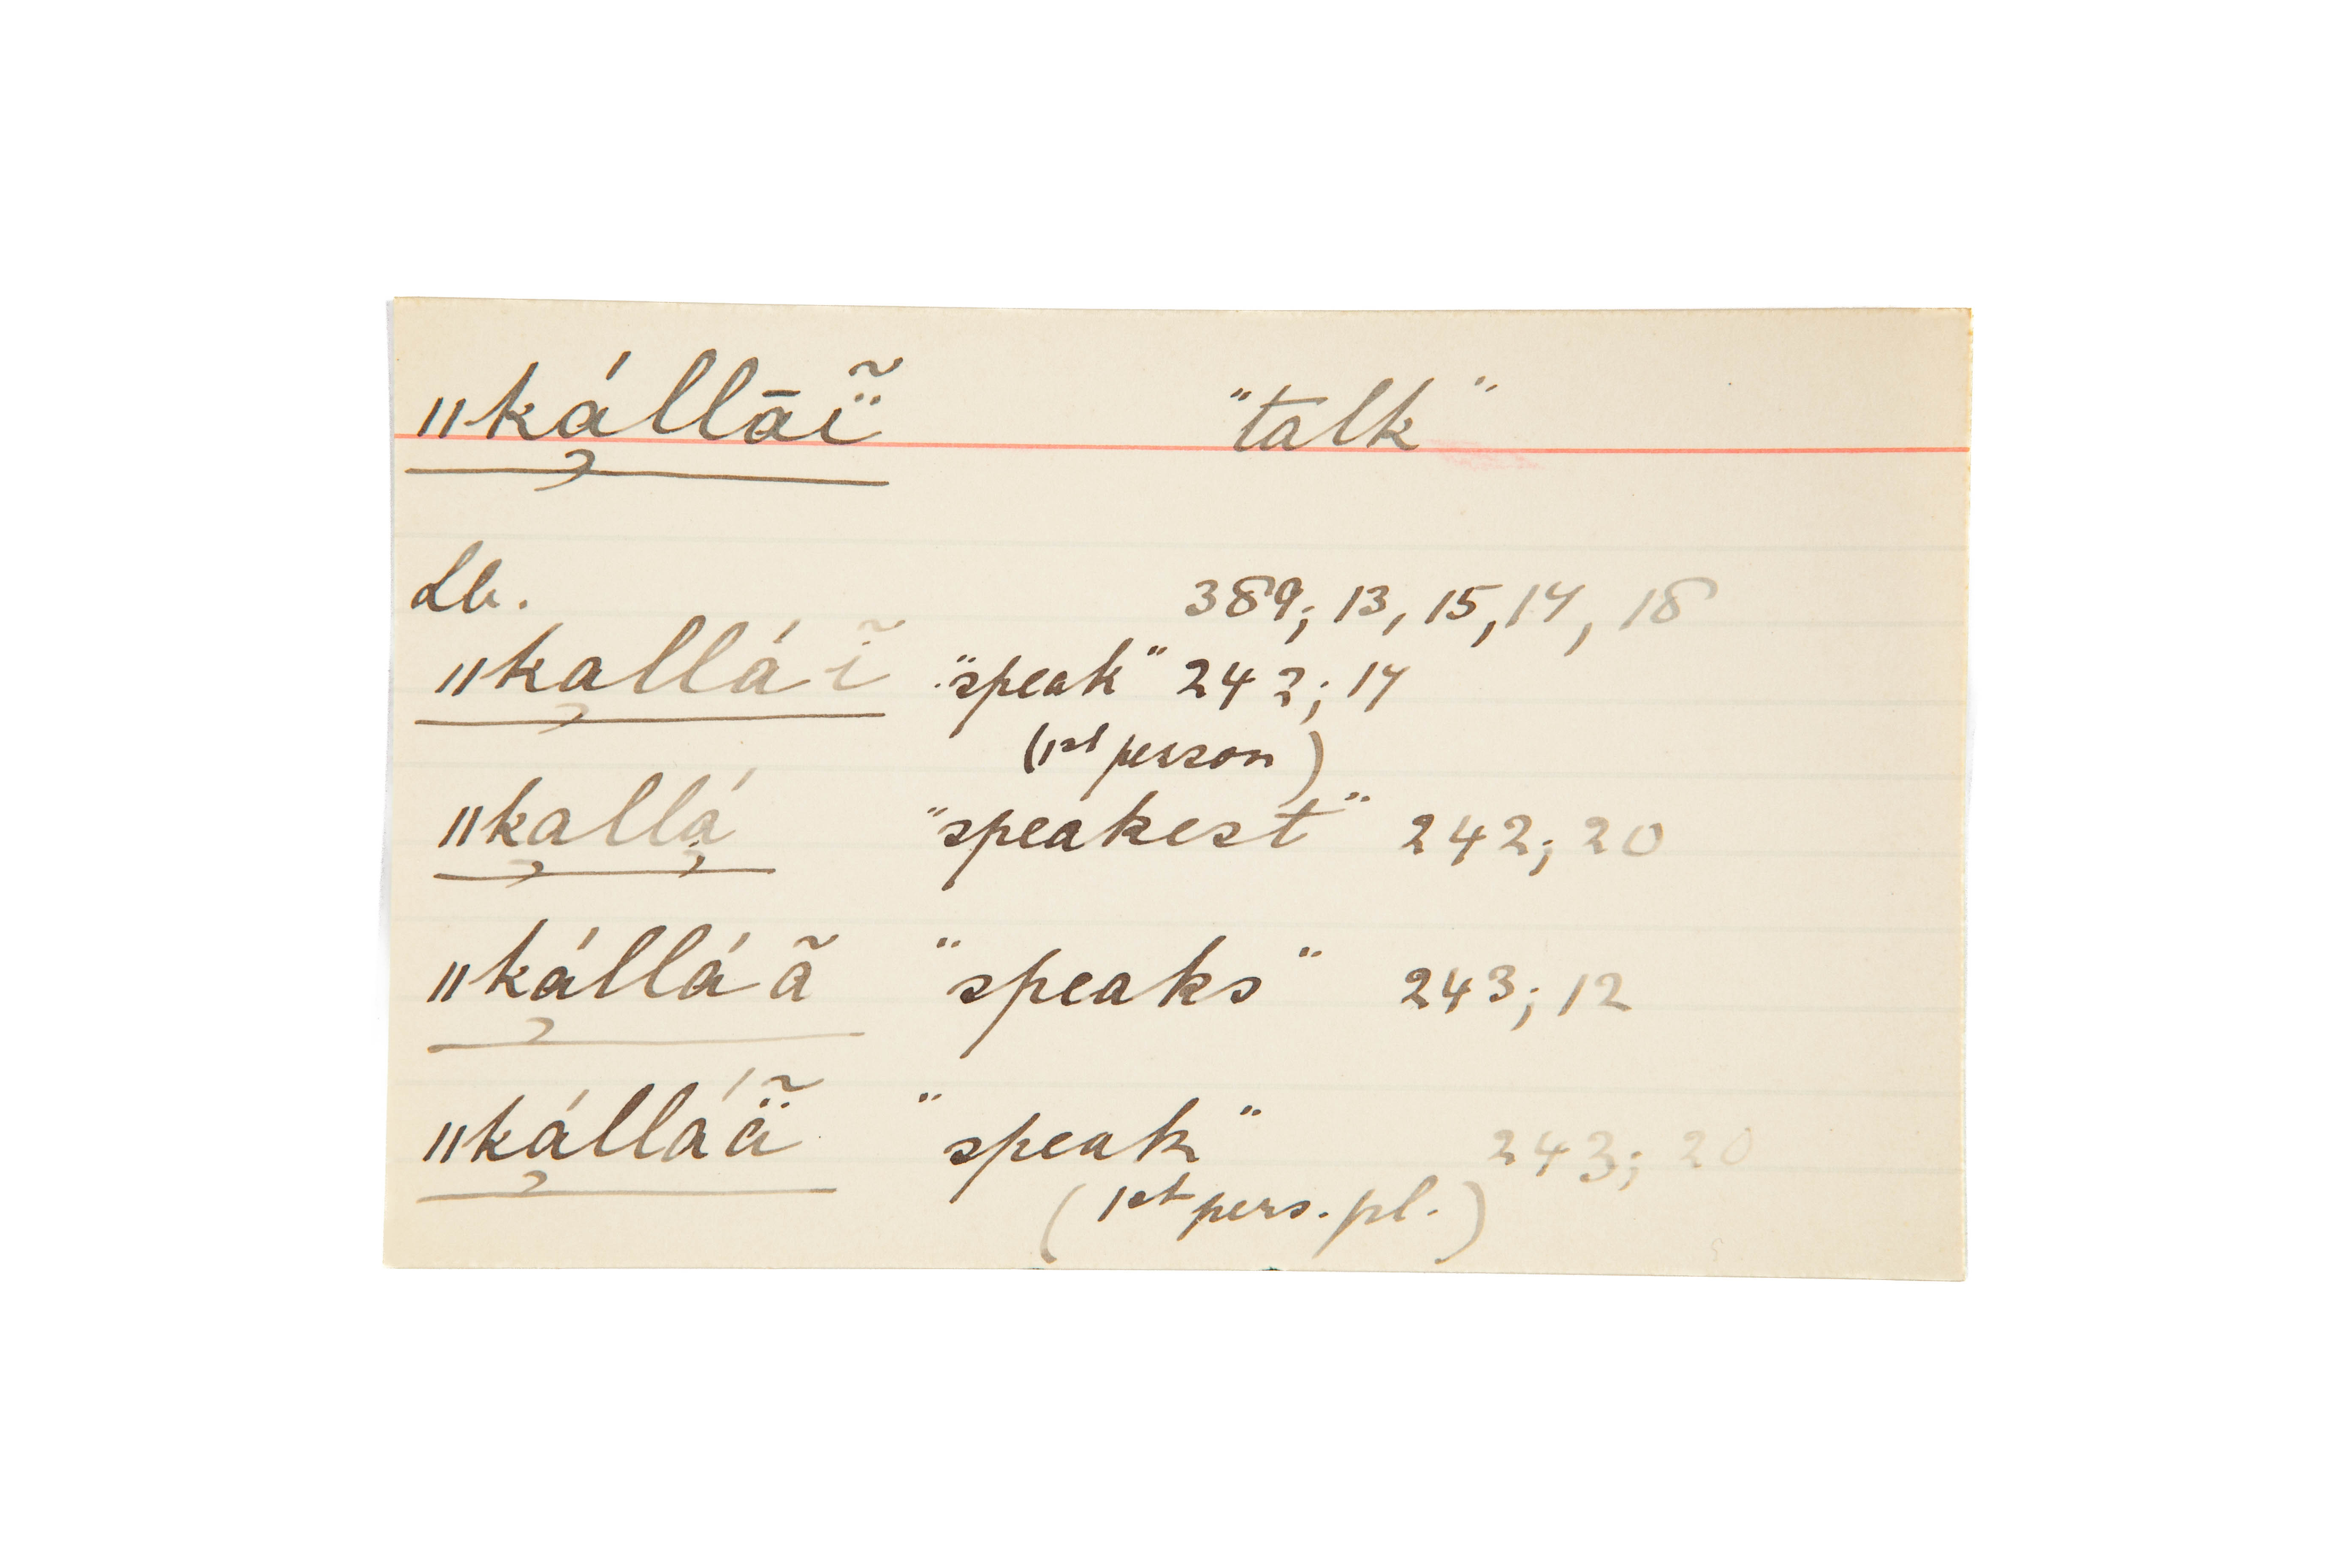 〃ká̦llāï̃ "talk"
Lb. 389; 13, 15, 17, 18
〃ka̦lláĩ "speak" 242; 17
(1st person)
〃ka̦llá̦ "speakest" 242; 20
〃ká̦lláã "speaks" 243; 12
〃ká̦lláä̃ "speak" 243; 20
(1st pers. pl.)